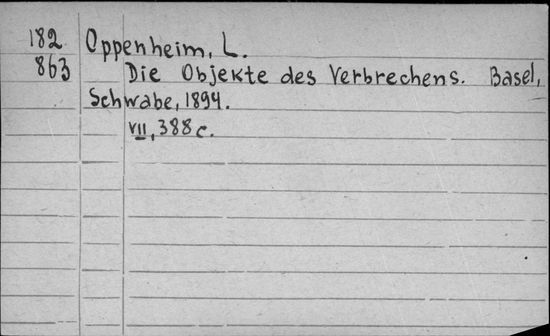 182 Oppenheim, L.
863 Die Objekte des Verbrechens. Basel,
Schwabe, 1894.
VII, 388 c.